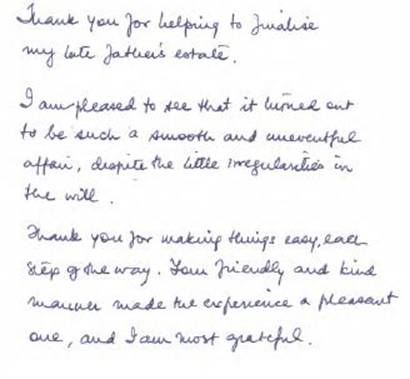 Thank you for helping to finalise
my late father's estate.
I am pleased to see that it turned out
to be such a smooth and uneventful
affair, despite the little irregularities in
the will.
Thank you for making things easy, each
step of the way. Your friendly and kind
manner made the experience a pleasant
one, and I am most grateful.